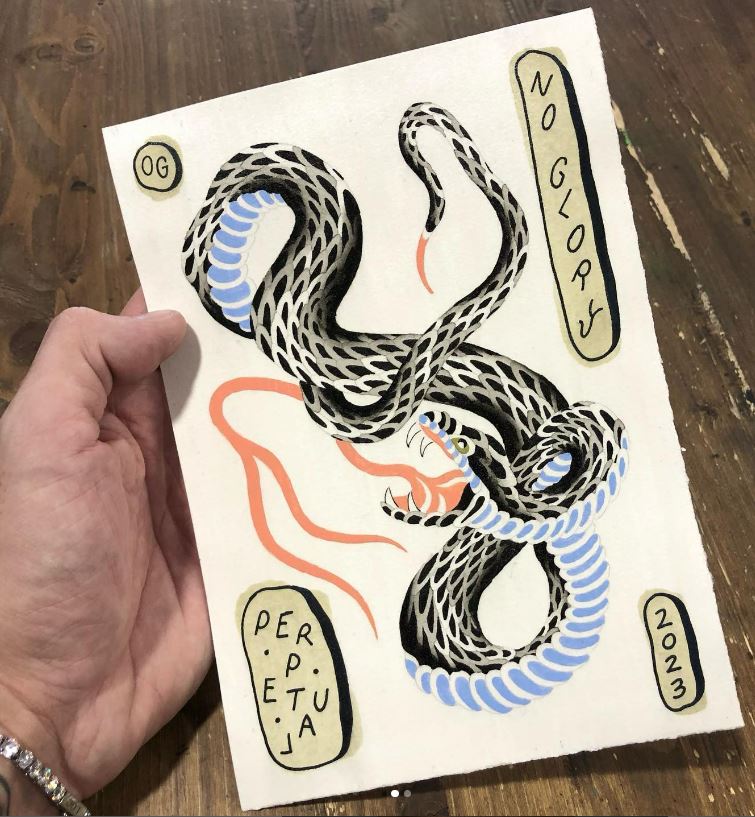 OG
NO GLORY
PER
·P·
ETU
·A
L
2023